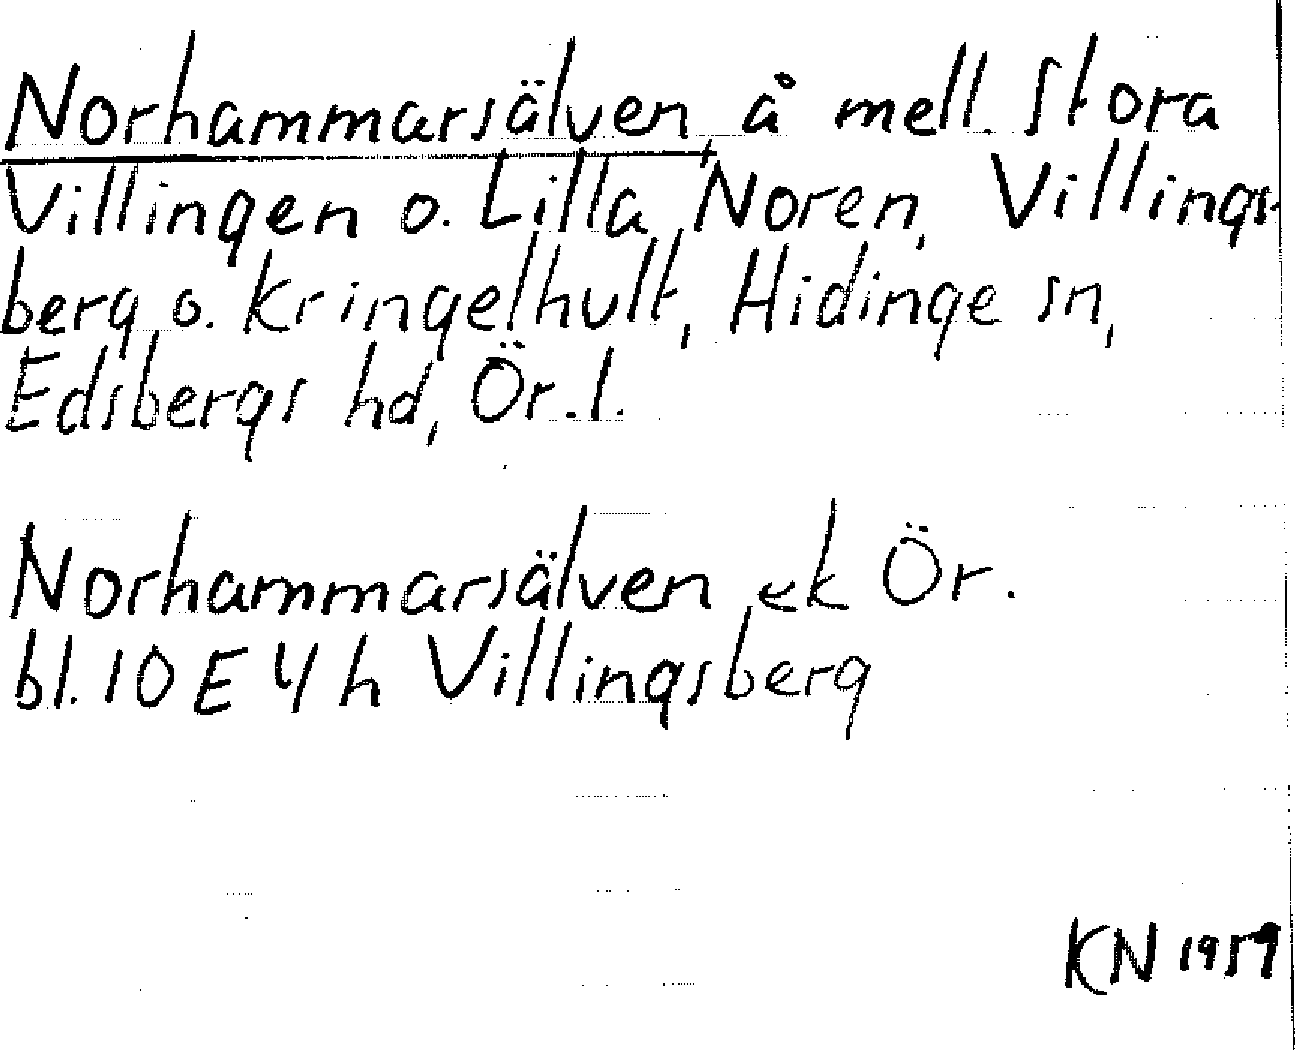 Norhammarsälven, å mell. Stora
Villingen o. Lilla Noren, Villings-
berg o. Kringelhult, Hidinge sn,
Edsbergs hd, Ör. l.
Norhammarsälven ek Ör.
bl. 10 E 4 h Villingsberg
KN 1959